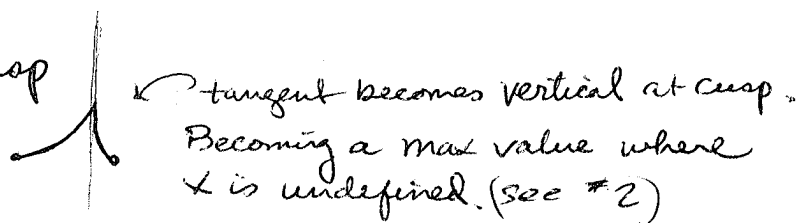 sp
tangent becomes vertical at cusp.
Becoming a max value where
x is undefined. (see #2)